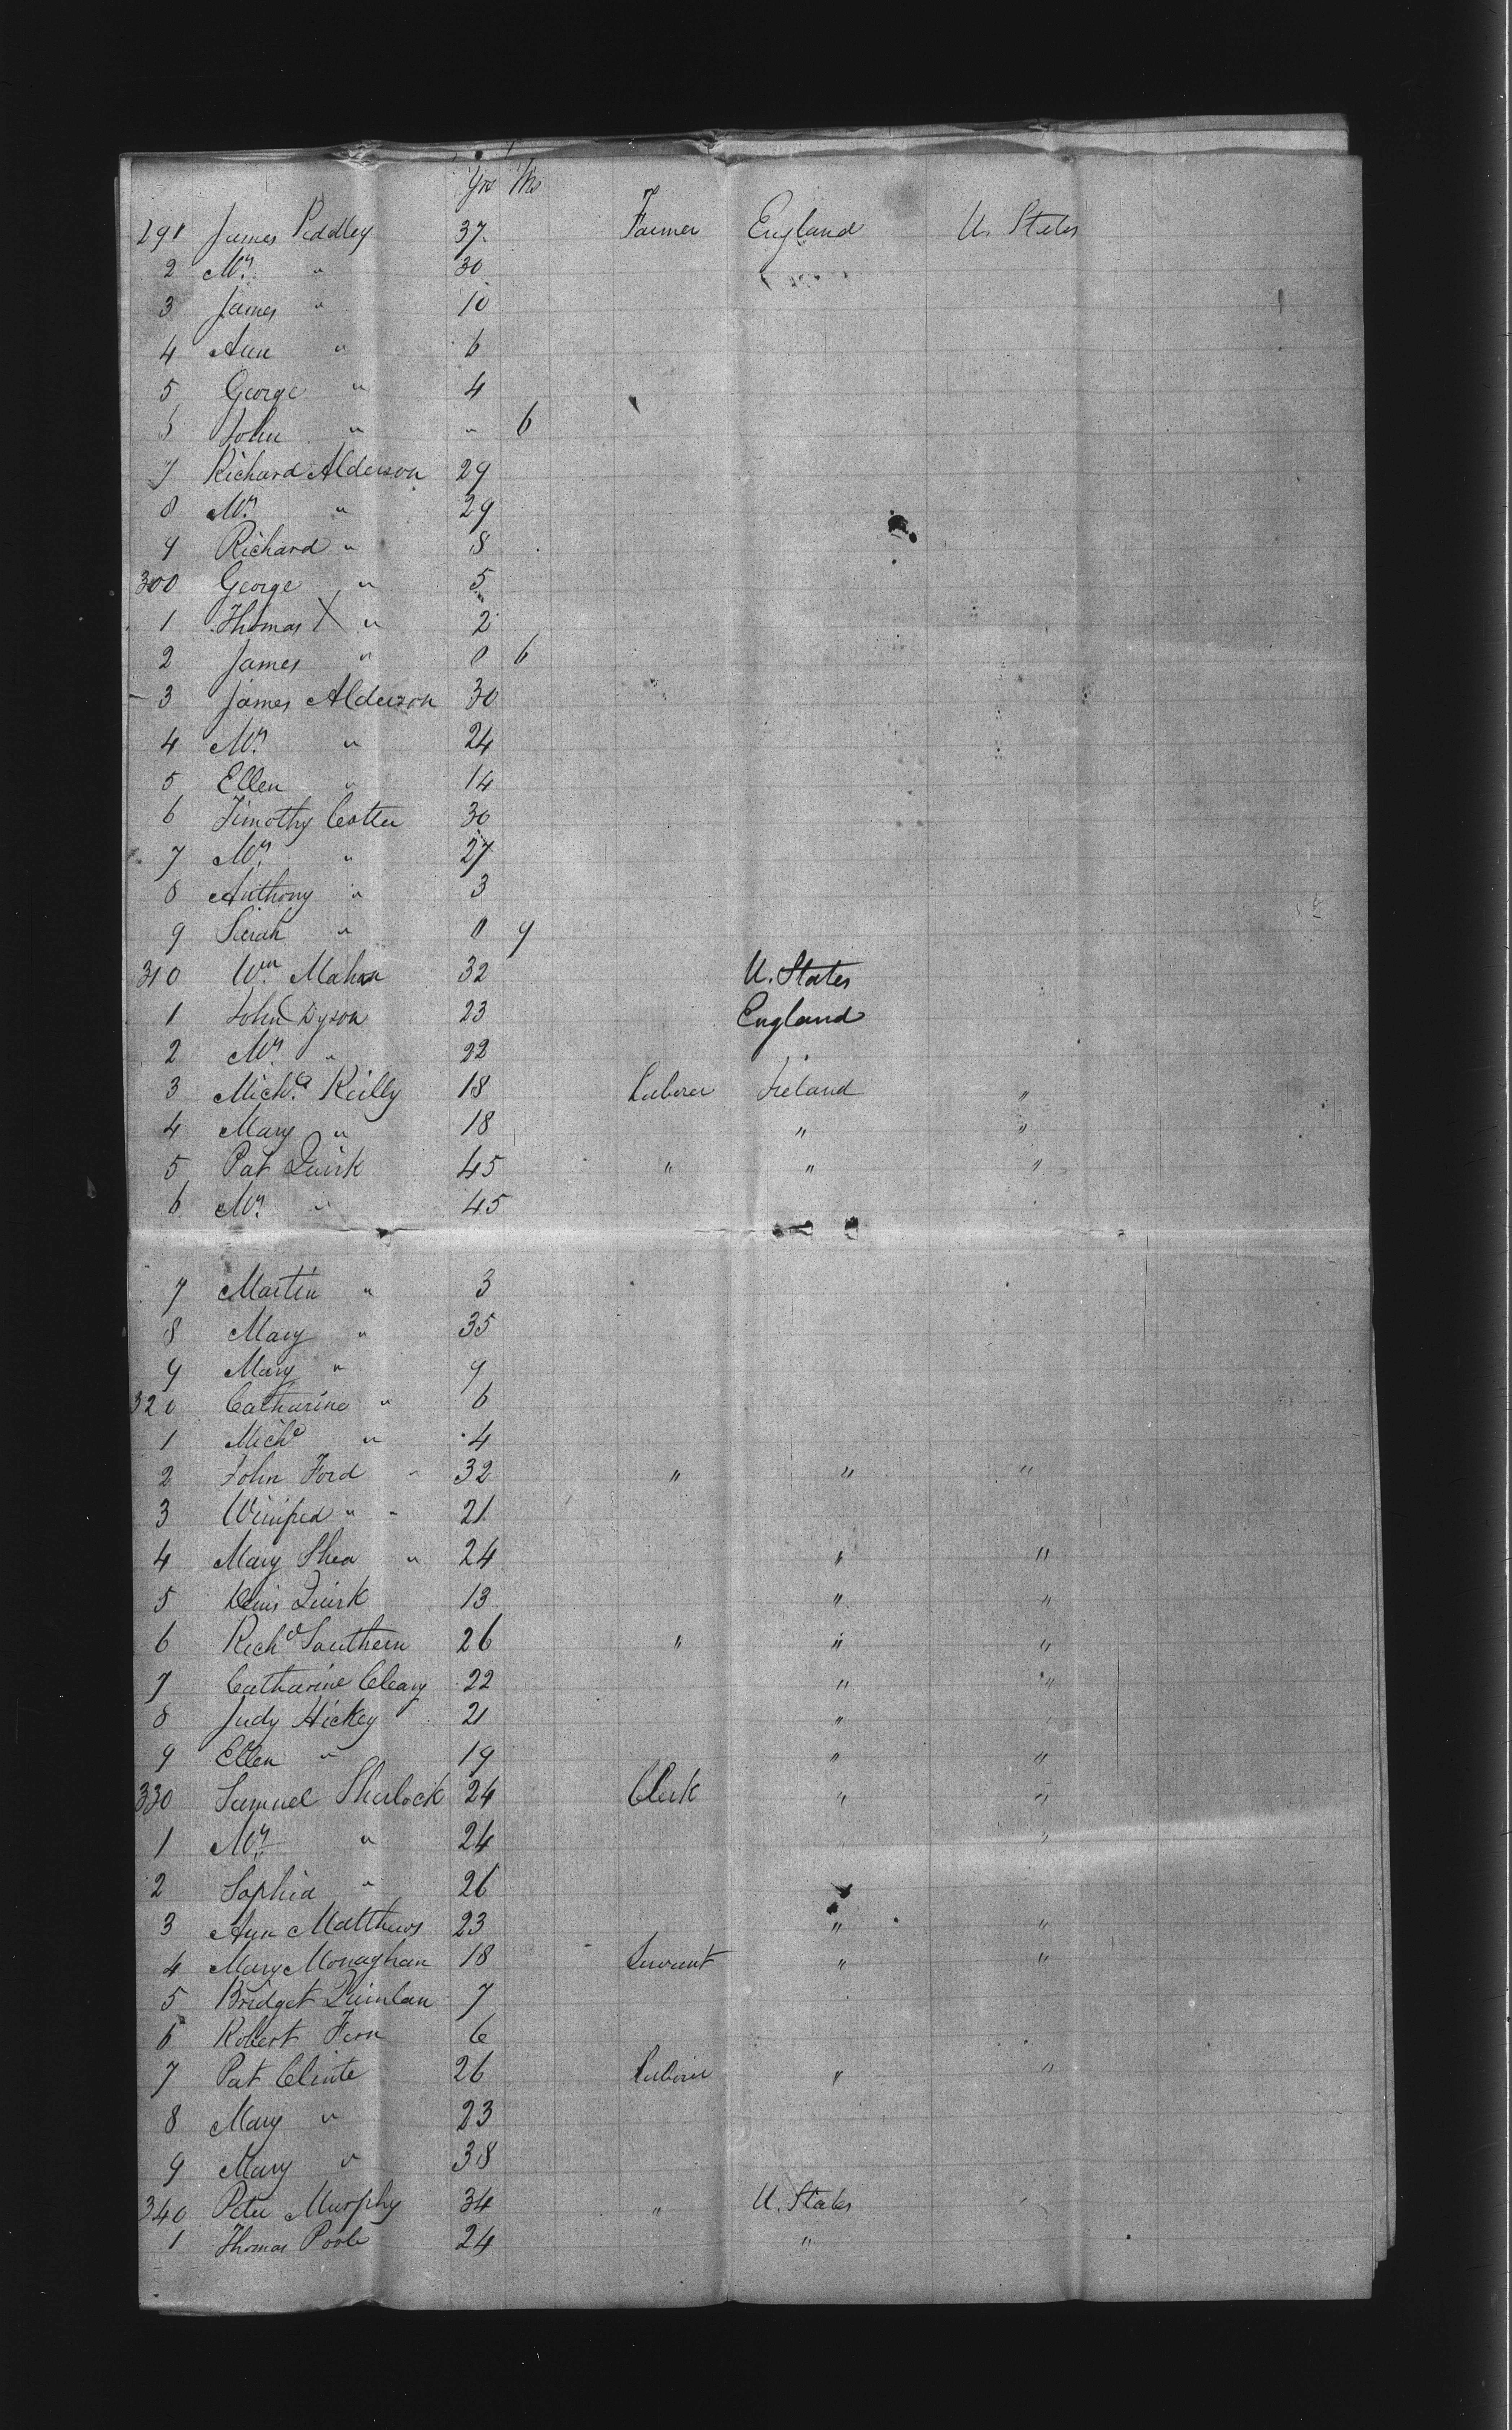 Yrs Ms
291 James Peddley 37 Farmer England U. States
2 Mrs " 30
3 James " 10
4 Ann " 6
5 George " 4
6 John " " 6
7 Richard Alderson 29
8 Mrs " 29
9 Richard " 8
300 George " 5
1 Thomas X " 2
2 James " 0 6
3 James Alderson 30
4 Mrs " 24
5 Ellen " 14
6 Timothy Cotter 30
7 Mrs " 27
8 Anthony " 3
9 Sarah " 0 9
310 Wm Mahon 32 U. States
1 John Dyson 23 England
2 Mrs " 22
3 Michl Reilly 18 Laborer Ireland "
4 Mary " 18 " "
5 Pat Quirk 45 " " "
6 Mrs " 45
7 Martin " 3
8 Mary " 35
9 Mary " 9
320 Catharine " 6
1 Michl " 4
2 John Ford " 32 " " "
3 Winifred " " 21
4 Mary Shea " 24 " "
5 Denis Quirk 13 " "
6 Richd Southern 26 " " "
7 Catharine Cleary 22 " "
8 Judy Hickey 21 "
9 Ellen " 19 " "
330 Samuel Sherlock 24 Clerk " "
1 Mrs " 24 "
2 Sophia " 26
3 Ann Matthews 23 " "
4 Mary Monaghan 18 Servant " "
5 Bridget Quinlan 7
6 Robert 6
7 Pat Clinte 26 Laborer " "
8 Mary " 23
9 Mary " 38
340 Peter Murphy 34 " U. States "
1 Thomas Poole 24 "